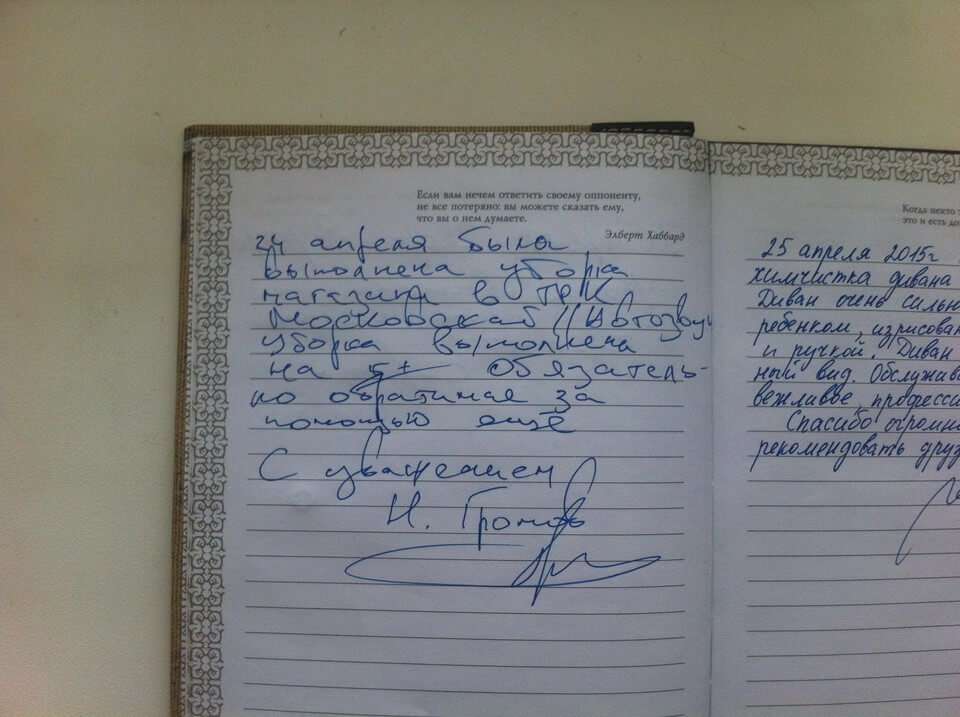 Если вам нечем ответить своему оппоненту,
не все потеряно: вы можете сказать ему,
что вы о нем думаете.
Элберт Хаббард
24 апреля была
выполнена уборка
магазина в ТРК
Московской
уборка выполнена
на 5+ Обязатель-
но обратимся за
помощью ещё
С уважением
Н. Громов
Когда некто
это и есть
25 апреля 2015г
химчистка дивана
Диван очень сильн
ребенком, изрисован
и ручкой. Диван
ный вид. Обслужива
вежливое, професси
Спасибо огромн
рекомендовать друз